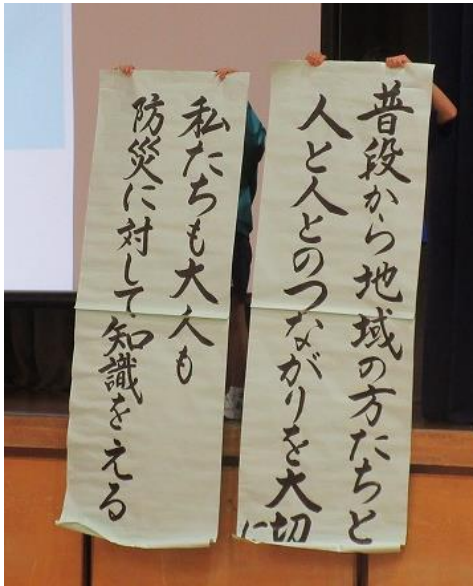 普段から地域の方たちと
人と人とのつながりを大切に
私たちも大人も
防災に対して知識をえる